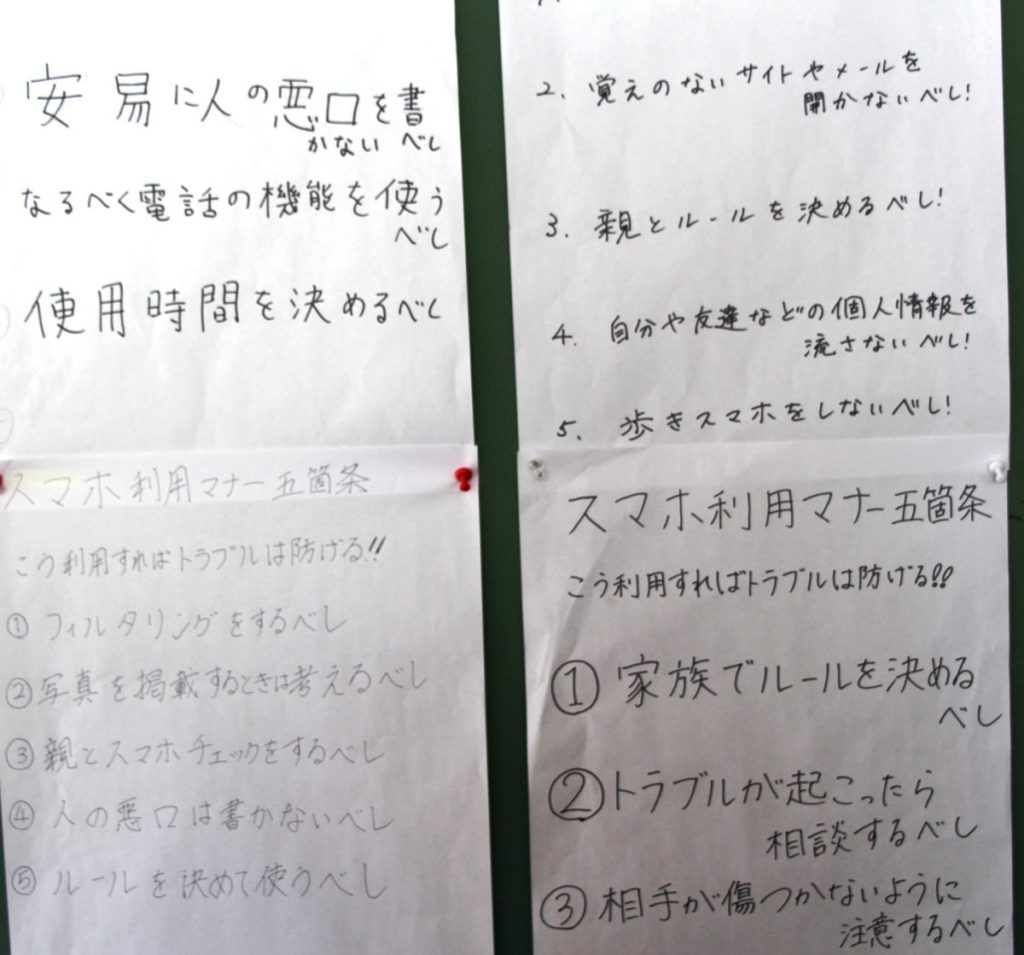 安易に人の悪口を書
かないべし
なるべく電話の機能を使う
べし
使用時間を決めるべし
スマホ利用マナー五箇条
こう利用すればトラブルは防げる!!
① フィルタリングをするべし
② 写真を掲載するときは考えるべし
③ 親とスマホチェックをするべし
④ 人の悪口は書かないべし
⑤ ルールを決めて使うべし
2. 覚えのないサイトやメールを
開かないべし!
3. 親とルールを決めるべし!
4. 自分や友達などの個人情報を
流さないべし!
5. 歩きスマホをしないべし!
スマホ利用マナー五箇条
こう利用すればトラブルは防げる!!
① 家族でルールを決める
べし
② トラブルが起こったら
相談するべし
③ 相手が傷つかないように
注意するべし